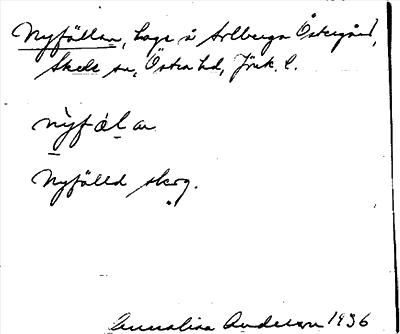 Nyfällan, hage å Solberga Östergård,
Skede sn, Östra hd, Jönk. l.
nỳfál an
Nyfälld skog.
Annalisa Anderson 1936